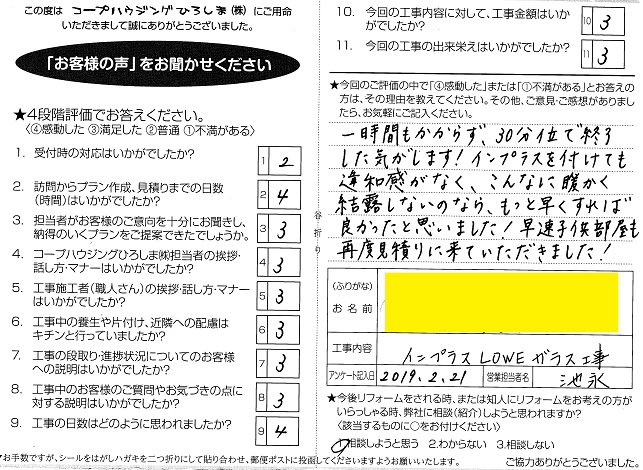 この度は コープハウジングひろしま(株) にご用命
いただきまして誠にありがとうございました。
「お客様の声」をお聞かせください
★4段階評価でお答えください。
〈④感動した ③満足した ②普通 ①不満がある〉
1. 受付時の対応はいかがでしたか?
1 2
2. 訪問からプラン作成、見積りまでの日数
(時間)はいかがでしたか?
2 4
3. 担当者がお客様のご意向を十分にお聞きし、
納得のいくプランをご提案できたでしょうか。
3 3
4. コープハウジングひろしま㈱担当者の挨拶・
話し方・マナーはいかがでしたか?
4 3
5. 工事施工者(職人さん)の挨拶・話し方・マナー
はいかがでしたか?
5 3
6. 工事中の養生や片付け、近隣への配慮は
キチンと行っていましたか?
6 3
7. 工事の段取り・進捗状況についてのお客様
への説明はいかがでしたか?
7 3
8. 工事中のお客様のご質問やお気づきの点に
対する説明はいかがでしたか?
8 3
9. 工事の日数はどのように思われましたか?
9 4
▼お手数ですが、シールをはがしハガキを二つ折りにして貼り合わせ、郵便ポストに投函してくださいますようお願いいたします。
谷折り
10. 今回の工事内容に対して、工事金額はいか
がでしたか?
10 3
11. 今回の工事の出来栄えはいかがでしたか?
11 3
★今回のご評価の中で「④感動した」または「①不満がある」とお答え
の方は、その理由を教えてください。その他、ご意見・ご感想がありまし
たら、お気軽にご記入ください。
一時間もかからず、30分位で終了
した気がします!インプラスを付けても
違和感がなく、こんなに暖かく
結露しないのなら、もっと早くすれば
良かったと思いました!早速子供部屋も
再度見積りに来ていただきました!
(ふりがな)
お名前
工事内容
インプラス LOWE ガラス工事
アンケート記入日
2019.2.21
営業担当者名
池永
★今後リフォームをされる時、または知人にリフォームをお考えの方が
いらっしゃる時、弊社に相談(紹介)しようと思われますか?
〈該当するものに○をお付けください〉
1.相談しようと思う 2.わからない 3.相談しない
ご協力ありがとうございました。